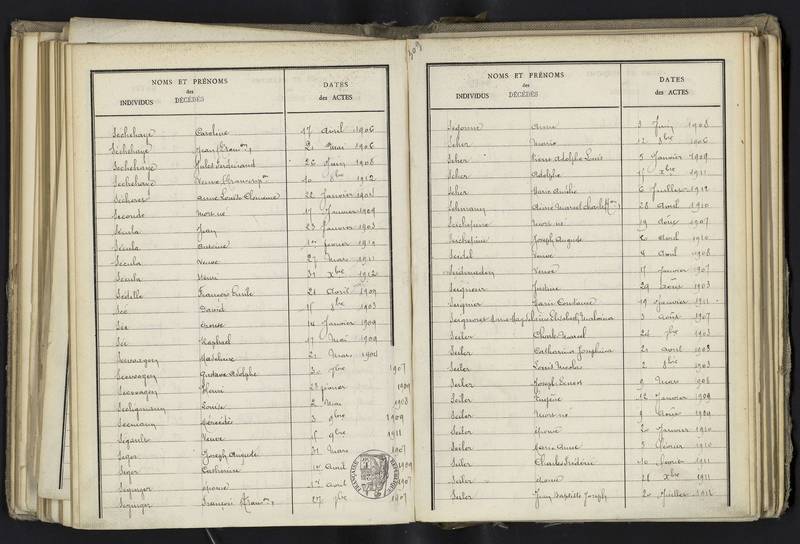 NOMS ET PRÉNOMS
des
INDIVIDUS DÉCÉDÉS
DATES
des ACTES
Séchehaye Caroline 17 Avril 1906
Séchehaye Jean 2 Mai 1906
Séchehaye Jules Ferdinand 26 Juin 1908
Séchehaye Veuve 10 8bre 1912
Sécheret Anne Louise 22 Janvier 1904
Seconde Mort né 17 Janvier 1909
Secula Jean 23 Janvier 1903
Secula Antoine 1er février 1910
Secula Veuve 27 Mars 1911
Secula Henri 31 Xbre 1912
Sédille François Emile 21 Avril
Sée David 15 8bre 1903
Sée 14 Janvier 1909
Sée Raphael 17 Mai 1909
Madeleine 21 Mars 1904
Gustave Adolphe 20 7bre 1907
Henri 28 février 1909
Seeligmann Louise 2 Mai 1908
Seemann Mercédès 3 9bre 1909
Ségault Veuve 15 9bre 1911
Joseph Auguste 31 Mars 1907
Catherine 1er Avril 1909
Séginger épouse 17 Avril 1907
Séginger François 27 7bre 1907
309
NOMS ET PRÉNOMS
des
INDIVIDUS DÉCÉDÉS
DATES
des ACTES
Segonne Anne 3 Juin 1908
Seher Marie 12 8bre 1906
Seher Pierre Adolphe Louis 5 Janvier 1909
Seher Adolphe 15 Xbre 1911
Seher Marie Amélie 6 Juillet 1912
Sehmann Aimé Marcel Charles 28 Avril 1910
Mort né 19 Août 1907
Joseph Auguste 2 Avril 1910
Seidel Veuve 8 Avril 1908
Veuve 17 Janvier 1907
Seigneur Justine 29 Août 1903
Seignier Marie Constance 19 Janvier 1911
Seignoret Anne Magdeleine Elisabeth Malvina 3 Août 1907
Seiler Charles Marcel 24 7bre 1903
Seiler Catharina Josephina 21 Avril 1903
Seiler Louis Nicolas 2 8bre 1903
Seiler Joseph Ernest 9 Mars 1908
Seiler Eugène 12 Janvier 1909
Seiler Mort né 9 Août 1909
Seiler épouse 20 Janvier 1910
Seiler Marie Anne 5 février 1910
Seiler Charles Frédéric 10 février 1911
Seiler épouse 28 Xbre 1911
Seiler Jean Baptiste Joseph 20 Juillet 1912